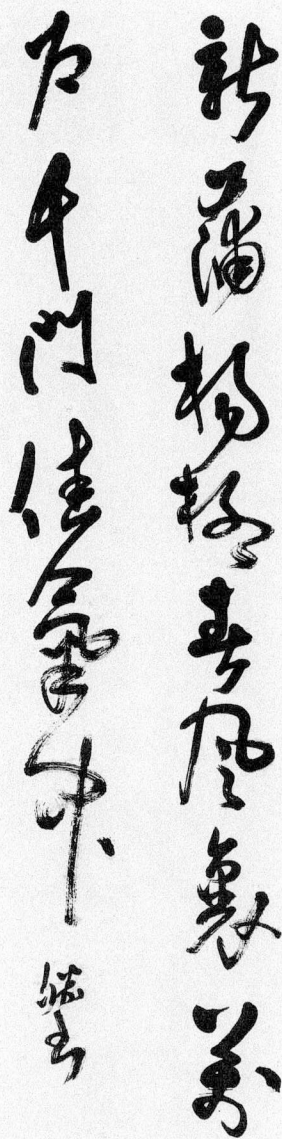 新蒲楊柳春風裏萬
户千門佳氣中